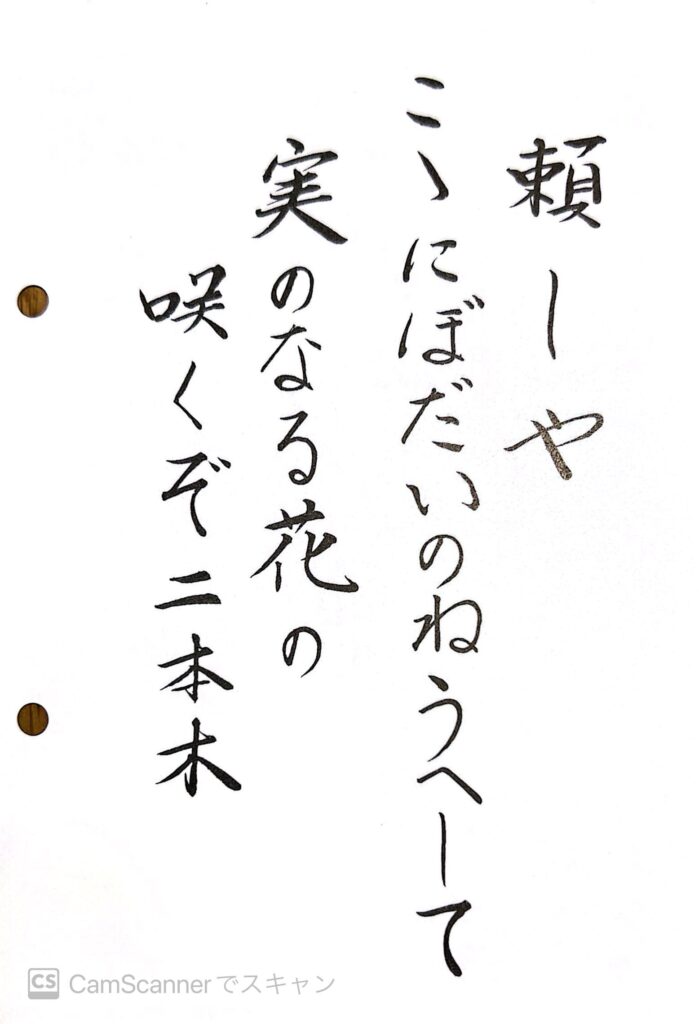 頼しや
こゝにぼだいのねうへして
実のなる花の
咲くぞ二本木
CS CamScannerでスキャン